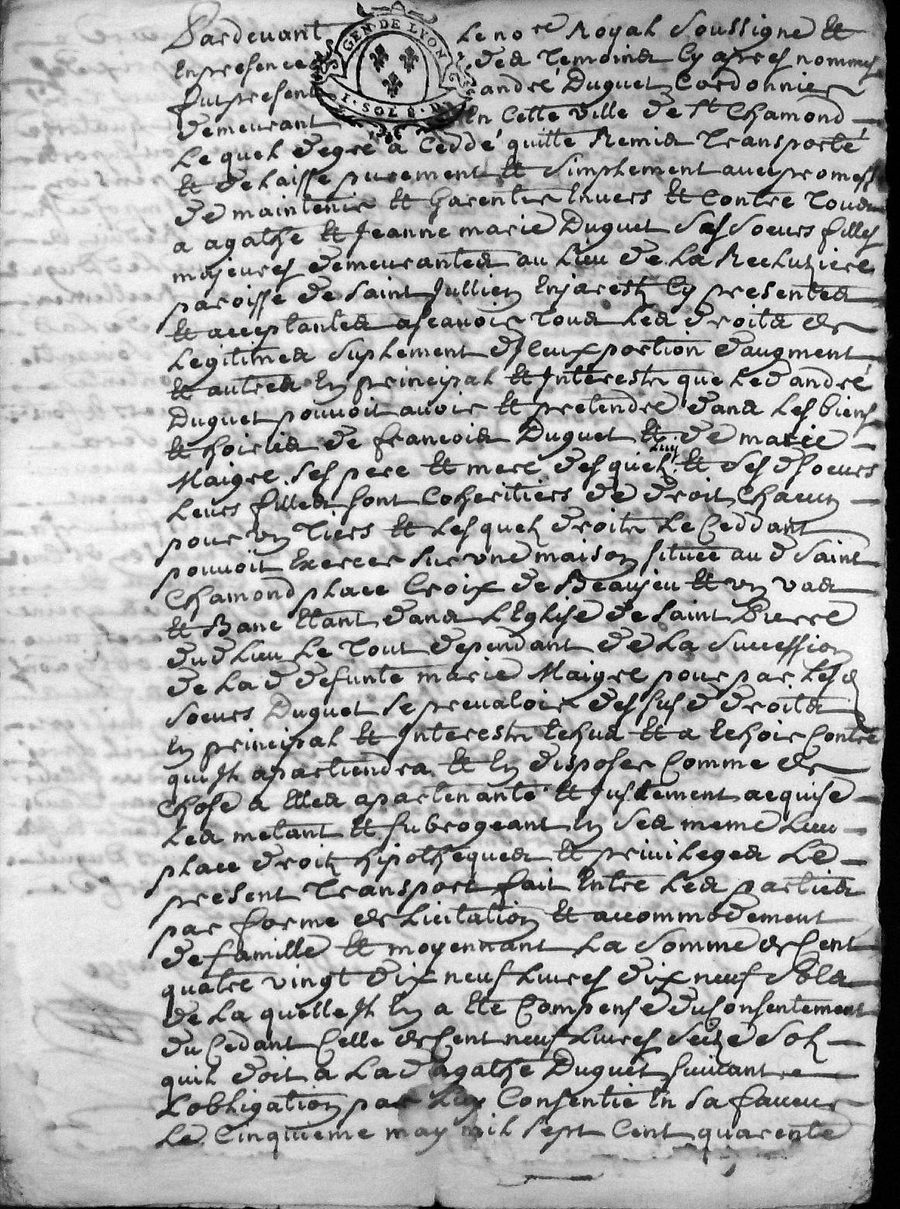 GEN. DE LYON
1. SOL 8. D
Pardevant Le no.re Royal Soussigné &
En presence des temoins Cy apres nommes
fut present andré Duguet Cordonnier
demeurant En Cette ville de St Chamond
Le quel de gré a Ceddé quitté Remis Transporté
& delaissé purement & Simplement avec promesse
de maintenir & Garentir Envers & Contre Tous
a agathe & Jeanne marie Duguet Ses Soeurs filles
majeures demeurantes au Lieu de La
paroisse de Saint Jullien Enjarest Cy presentes
& acceptantes ascavoir Tous Les droits de
Legitimes Suplement dIceux portion daugment
& autres En principal & Interests que Led andré
Duguet pouvoit avoir & pretendre dans Les biens
& hoiries de francois Duguet & de marie
Maigre Ses pere & mere desquels Luy & Ses d Soeurs
Leurs filles Sont Coheritiers de droit Chacun
pour un Tiers & Lesquels droits Le Ceddant
pouvoit Exercer Sur une maison Située au d Saint
Chamond place Croix de Beaujeu & un vas
& Banc Etant dans L'Eglise de Saint Pierre
dud Lieu Le Tout dependant de La Succession
de La d defunte marie Maigre pour par Lesd
Soeurs Duguet Se prevaloir des Susd droits
En principal & Interests Echus & a Echoir Contre
qui Il apartiendra & En disposer Comme de
Chose a Elles apartenante & Justement acquise
Les metant & Subrogeant En Ses meme Lieu
place droits hipotheques & privileges Le
present Transport fait Entre Les parties
par forme de Licitation & accommodement
de famille & moyennant La Somme de Cent
quatre vingt dix neuf Livres dix neuf Sols
de La quelle Il En a Eté Compensé du Consentement
du Cedant Celle de Cent neuf Livres Seize Sols
quil doit a La d agathe Duguet Suivant
Lobligation par Luy Consentie En Sa faveur
Le Cinquieme may mil Sept Cent quarente